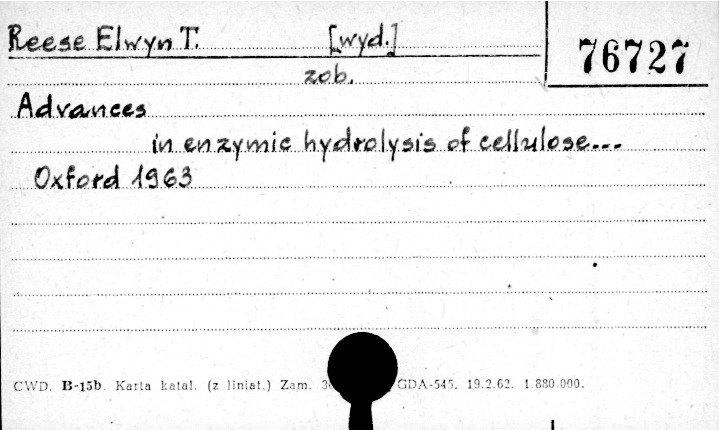 Reese Elwyn T. [wyd.]
76727
zob.
Advances
in enzymic hydrolysis of cellulose...
Oxford 1963
CWD. B-15b. Karta katal. (z liniat.) Zam. GDA-545. 19.2.62. 1.880.000.